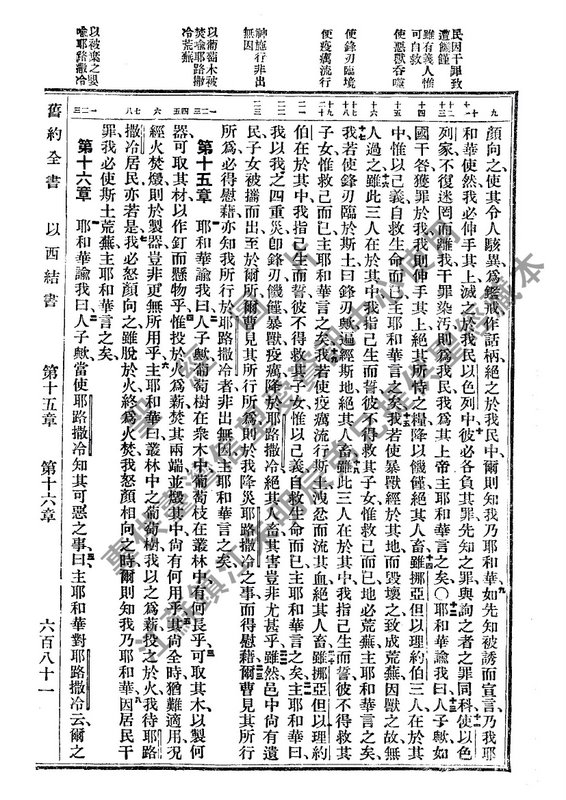 民因干罪致
遭饑饉
雖有義人惟
可自救
使惡獸吞噬
使鋒刃臨境
使疫癘流行
神施行非出
無因
以葡萄木被
焚喩耶路撒
冷荒蕪
以被棄之嬰
喩耶路撒冷
顏向之使其令人駭異爲鑒戒作話柄絕之於我民中爾則知我乃耶和華如先知被誘而宣言乃我耶
和華使然我必伸手其上滅之於我民以色列中彼必各負其罪先知之罪與詢之者之罪同科使以色
列家不復迷罔而離我干罪染汚則爲我民我爲其上帝主耶和華言之矣〇耶和華諭我曰人子歟如
國干咎獲罪於我我則伸手其上絕其所恃之糧降以饑饉絕其人畜雖挪亞但以理約伯三人在於其
中惟以己義自救生命而已主耶和華言之矣我若使暴獸經於其地而毀壞之致成荒蕪因獸之故無
人過之雖此三人在於其中我指己生而誓彼不得救其子女惟救己而已地必荒蕪主耶和華言之矣
我若使鋒刃臨於斯土曰鋒刃歟遍經斯地絕其人畜雖此三人在於其中我指己生而誓彼不得救其
子女惟救己而已主耶和華言之矣我若使疫癘流行斯土洩忿而流其血絕其人畜雖挪亞但以理約
伯在於其中我指己生而誓彼不得救其子女惟以己義自救生命而已主耶和華言之矣主耶和華曰
我以我之四重災卽鋒刃饑饉暴獸疫癘降於耶路撒冷絕其人畜其害豈非尤甚乎雖然邑中尙有遺
民子女被攜而出至於爾所爾曹見其所行所爲則於我降災耶路撒冷之事而得慰藉爾曹見其所行
所爲必得慰藉亦知我所行於耶路撒冷者非出無因主耶和華言之矣
第十五章 耶和華諭我曰人子歟葡萄樹在衆木中葡萄枝在叢林中有何長乎可取其木以製何
器可取其材以作釘而懸物乎惟投於火爲薪焚其兩端並燬其中尙有何用乎其尙全時猶難適用况
經火焚燬則於製器豈非更無所用乎主耶和華曰叢林中之葡萄樹我以之爲薪投之於火我待耶路
撒冷居民亦若是我必怒顏向之雖脫於火終爲火焚我怒顏相向之時爾則知我乃耶和華因居民干
罪我必使斯土荒蕪主耶和華言之矣
第十六章 耶和華諭我曰人子歟當使耶路撒冷知其可惡之事曰主耶和華對耶路撒冷云爾之
舊約全書 以西結書 第十五章 第十六章 六百八十一